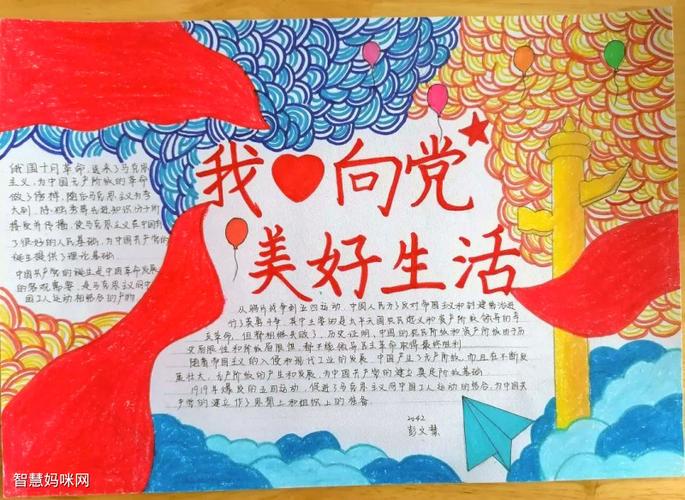 我❤向党
美好生活
俄国十月革命,送来了马克思
主义,为中国无产阶级的革命
做了指精,随后马克思主义为李
大钊、陈独秀等先进知识分子所
接受并传播,使马克思主义在中国有
了很好的人民基础,为中国共产党的
诞生提供了理论基础
中国共产党的诞生是中国革命发展
的客观需要,是马克思主义同中
国工人运动相结合的产物
从鸦片战争到五四运动,中国人民为了反对帝国主义和封建统治进
行了英勇斗争,其中主要的是太平天国农民起义和资产阶级领导的辛
亥革命,但都相继失败了,历史证明,中国的农民阶级和资产阶级由于历
史局限性和阶级局限性,都不能领导民主革命取得最终胜利
随着帝国主义的入侵和现代工业的发展,中国产业了无产阶级,而且在不断发
展壮大,无产阶级的产生和发展,为中国共产党的建立奠定阶级基础
1919年爆发的五四运动,促进了马克思主义同中国工人运动的结合,为中国共
产党的建立作了思想上和组织上的准备
2042
彭文慧
智慧妈咪网